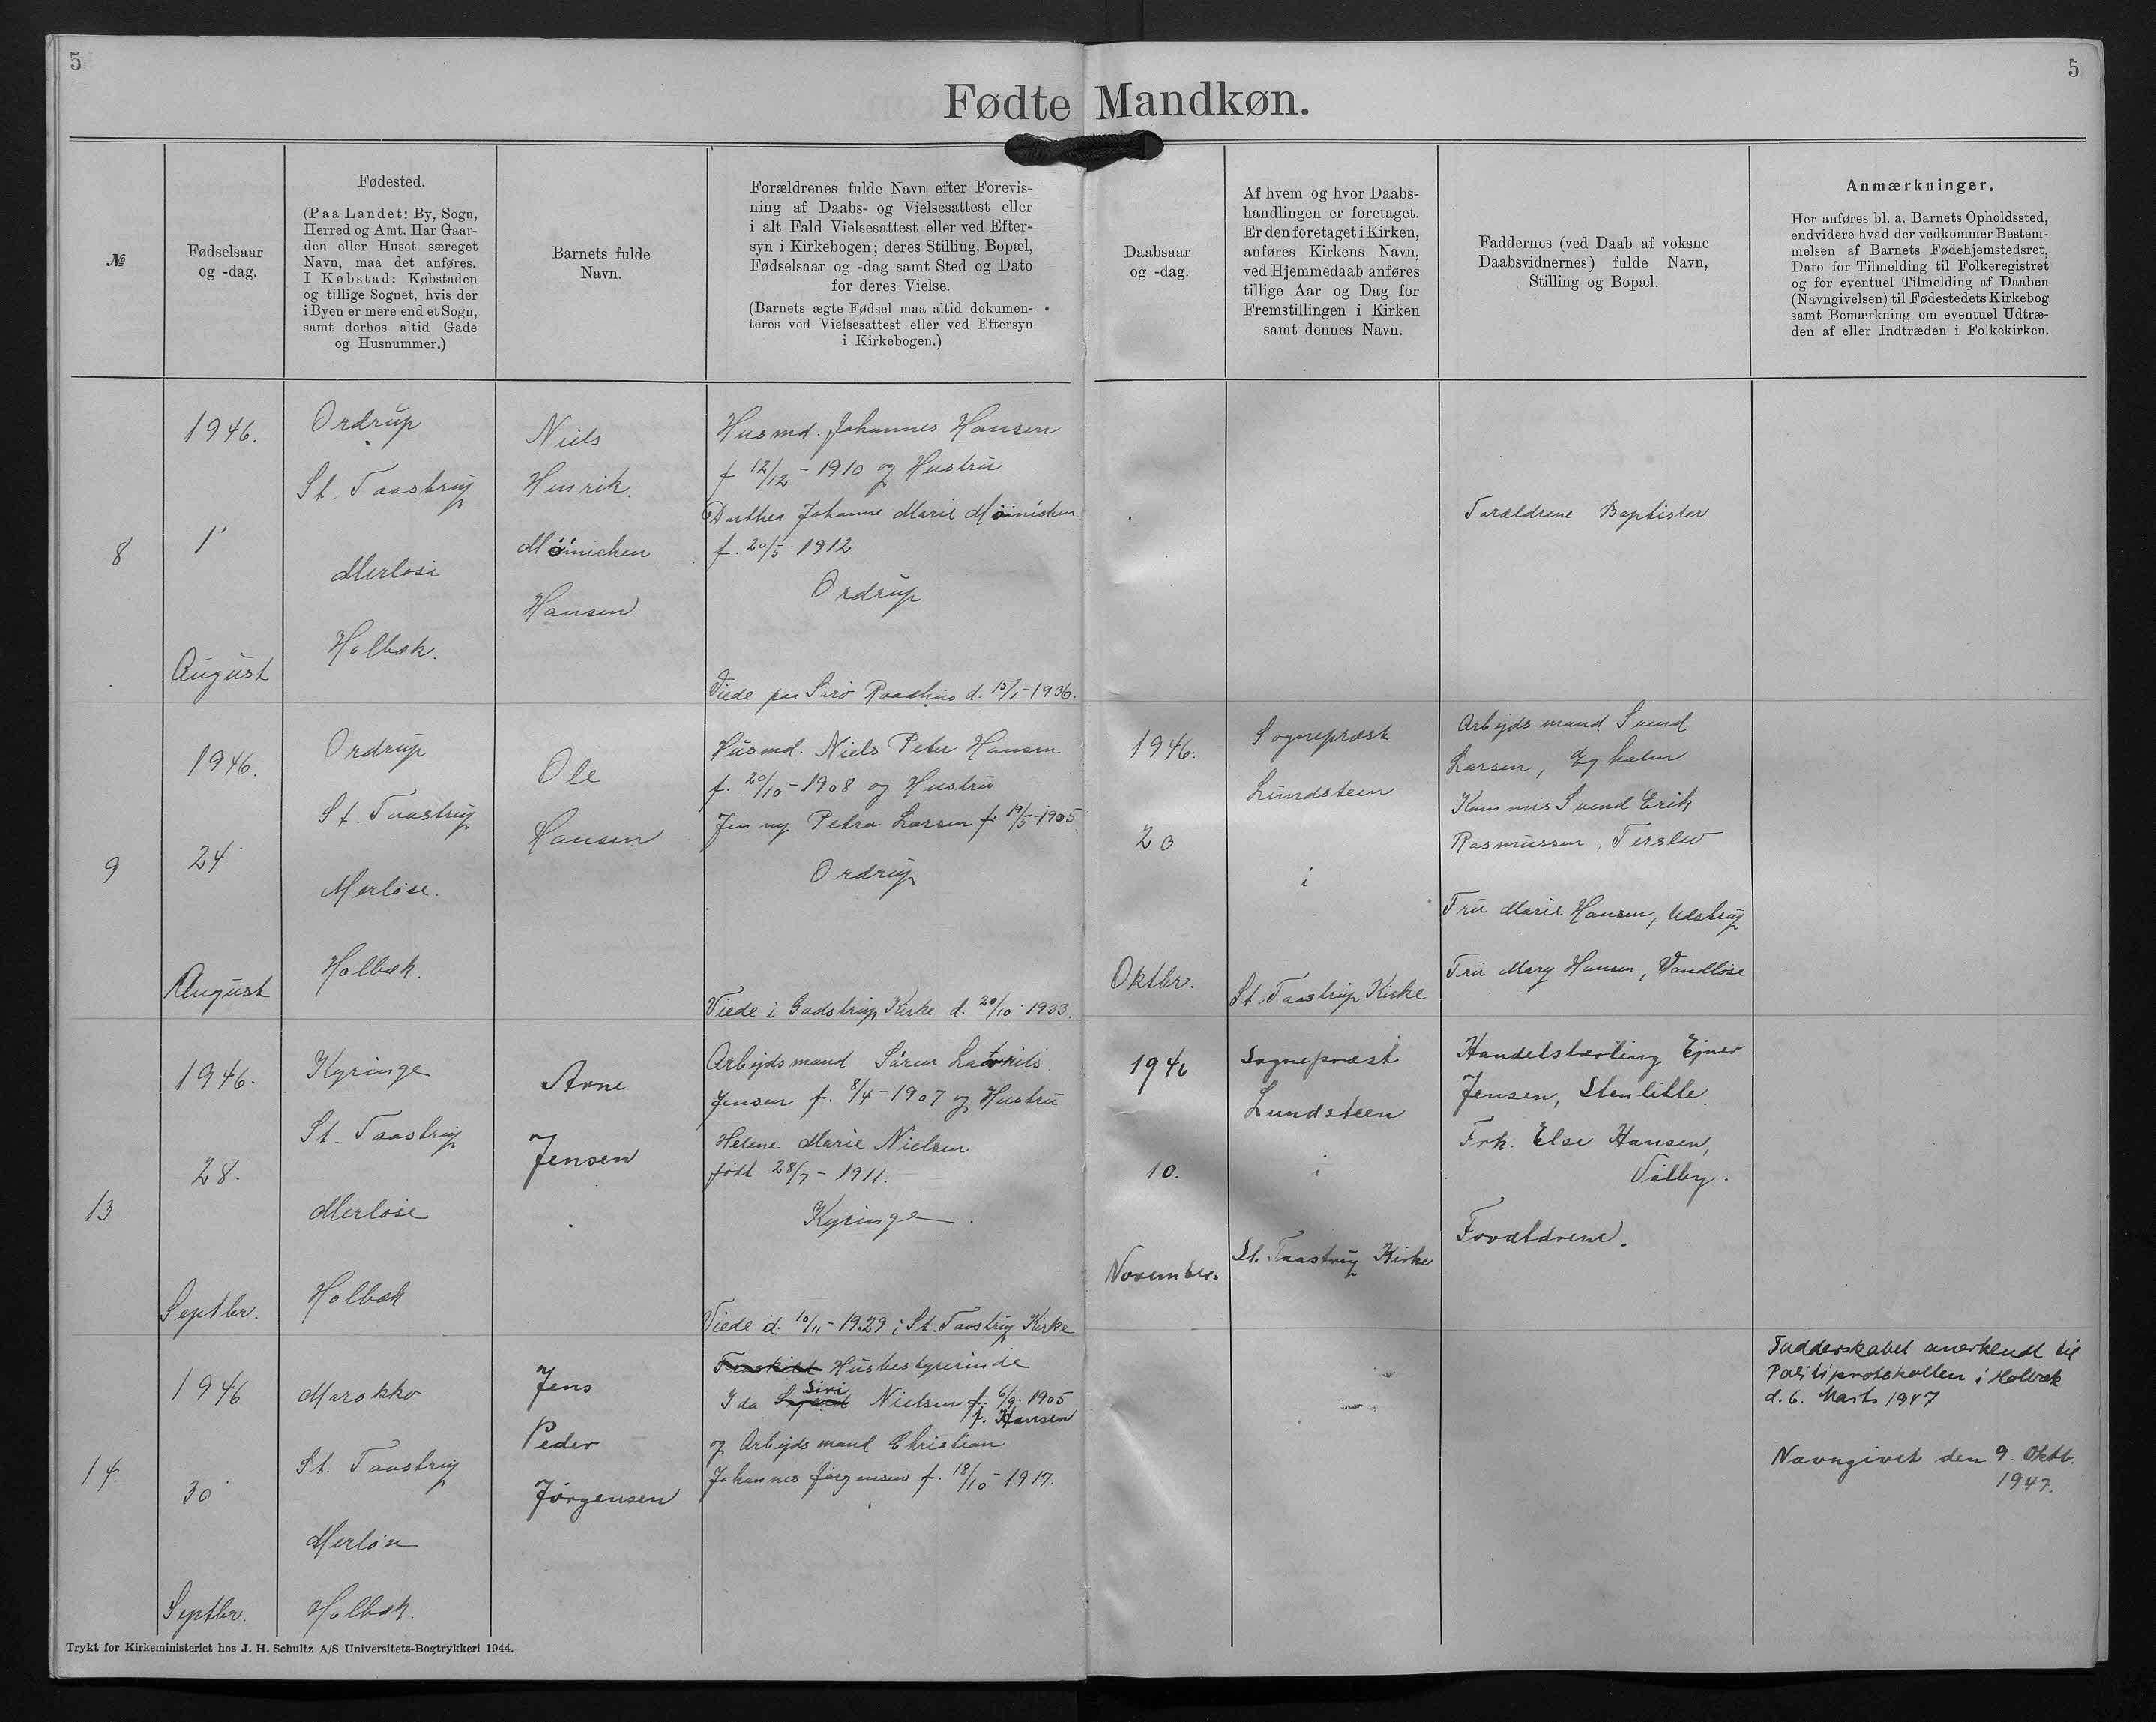 5
5
Fødte Mandkøn.
№
Fødselsaar
og -dag.
Fødested.
(Paa Landet: By, Sogn,
Herred og Amt. Har Gaar-
den eller Huset særeget
Navn, maa det anføres.
I Købstad: Købstaden
og tillige Sognet, hvis der
i Byen er mere end et Sogn,
samt derhos altid Gade
og Husnummer.)
Barnets fulde
Navn.
Forældrenes fulde Navn efter Forevis-
ning af Daabs- og Vielsesattest eller
i alt Fald Vielsesattest eller ved Efter-
syn i Kirkebogen; deres Stilling, Bopæl,
Fødselsaar og -dag samt Sted og Dato
for deres Vielse.
(Barnets ægte Fødsel maa altid dokumen-
teres ved Vielsesattest eller ved Eftersyn
i Kirkebogen.)
Daabsaar
og -dag.
Af hvem og hvor Daabs-
handlingen er foretaget.
Er den foretaget i Kirken,
anføres Kirkens Navn,
ved Hjemmedaab anføres
tillige Aar og Dag for
Fremstillingen i Kirken
samt dennes Navn.
Faddernes (ved Daab af voksne
Daabsvidnernes) fulde Navn,
Stilling og Bopæl.
Anmærkninger.
Her anføres bl. a. Barnets Opholdssted,
endvidere hvad der vedkommer Bestem-
melsen af Barnets Fødehjemstedsret,
Dato for Tilmelding til Folkeregistret
og for eventuel Tilmelding af Daaben
(Navngivelsen) til Fødestedets Kirkebog
samt Bemærkning om eventuel Udtræ-
den af eller Indtræden i Folkekirken.
8
1946.
1
August
Ordrup
St. Taastrup
Merløse
Holbæk.
Niels
Henrik
Mönnichen
Hansen
Husmd. Johannes Hansen
f 12/12 - 1910 og Hustru
Dorthea Johanne Marie Mönnichen
f. 20/5 - 1912
Ordrup
Viede paa Sorø Raadhus d. 15/1 - 1936.
Forældrene Baptister.
9
1946.
24
August
Ordrup
St. Taastrup
Merløse.
Holbæk.
Ole
Hansen
Husmd. Niels Peter Hansen
f. 20/10 - 1908 og Hustru
Jenny Petra Larsen f. 19/5 - 1905
Ordrup
Viede i Gadstrup Kirke d. 20/10 - 1933.
1946.
20
Oktbr.
Sognepræst
Lundsteen
i
St. Taastrup Kirke
Arbejdsmand Svend
Larsen, Egholm
Kommis Svend Erik
Rasmussen, Terslev
Fru Marie Hansen, Udstrup
Fru Mary Hansen, Vandløse
13
1946.
28.
Septbr.
Kyringe
St. Taastrup
Merløse
Holbæk
Arne
Jensen
Arbejdsmand Søren Lavrits
Jensen f. 8/4 - 1907 og Hustru
Helene Marie Nielsen
født 28/7 - 1911.
Kyringe.
Viede d. 10/11 - 1929 i St. Taastrup Kirke
1946
10.
November.
Sognepræst
Lundsteen
i
St. Taastrup Kirke
Handelslærling Ejner
Jensen, Stenlille.
Frk. Else Hansen,
Valby.
Forældrene.
14.
1946
30
Septbr.
Marokko
St. Taastrup
Merløse
Holbæk.
Jens
Peder
Jørgensen
Fraskilt Husbestyrerinde
Siri
Ida Nielsen f. 6/9. 1905
f. Hansen
og Arbejdsmand Christian
Johannes Jørgensen f. 18/10 - 1917.
Fadderskabet anerkendt til
Politiprotokollen i Holbæk
d. 6. Marts 1947
Navngivet den 9. Oktb.
1947.
Trykt for Kirkeministeriet hos J. H. Schultz A/S Universitets-Bogtrykkeri 1944.